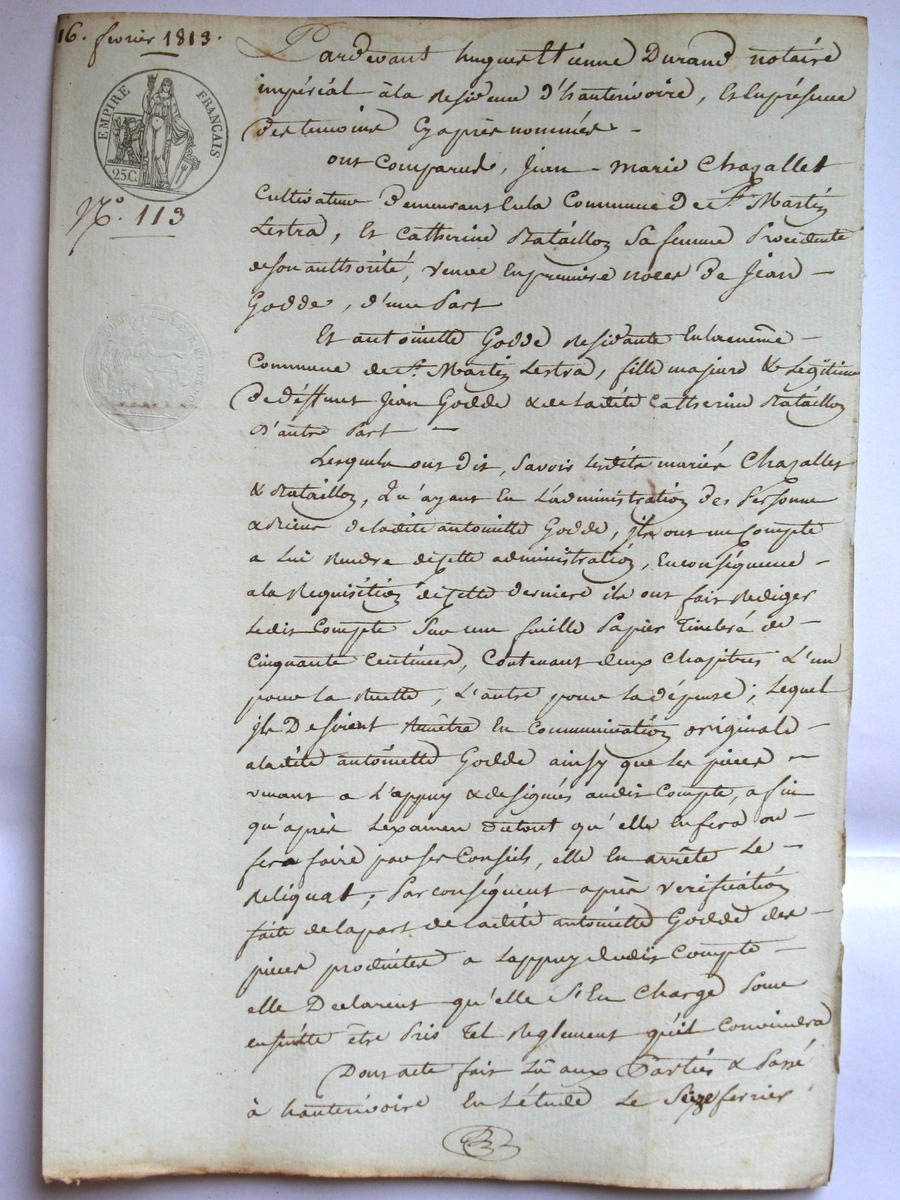 16. fevrier 1813.
EMPIRE FRANÇAIS
25C.
N.º 113
Pardevant hugues Etienne Durand notaire
impérial à la Residence d'hauterivoire, Et En présence
des temoins Cy après nommés –
ont Comparus, Jean-Marie Chazallet
Cultivateur Demeurant En la Commune De St. Martin
Lestra, Et Catherine Bataillon sa femme Procedente
de son authorité, veuve En premiere noces de Jean –
Godde, d'une Part
Et antoinette Godde Residante En la même –
Commune de St. Martin Lestra, fille majeure & Legitime
De deffunt Jean Godde & de ladite Catherine Bataillon
D'autre Part –
Lesquels ont dit, Savoir Lesdits mariés Chazallet
& Bataillon, Qu'ayant Eu L'administration des Personne
& Biens de ladite antoinette Godde, ils ont un Compte
a Lui Rendre de cette administration, En conséquence –
a la Requisition de cette derniere ils ont fait Rediger
Ledit Compte Sur une feuille Papier Timbré de –
Cinquante Centimes, Contenant deux Chapitres L'un
pour la Recette, L'autre pour la dépense; Lequel
ils Desirent Remettre En Communication originale –
a ladite antoinette Godde ainsy que les pieces –
venant a L'appuy & designés audit Compte, afin
qu'après L'examen du tout qu'elle En fera ou –
fera faire par ses Conseils, elle En arrête Le –
Reliquat; Par conséquent après verification
faite de la part de ladite antoinette Godde des –
pieces produites a Lappuy dudit Compte –
elle Declarent qu'elle S'En Charge Pour
ensuitte etre Pris Tel Reglement qu'il Conviendra
Dont acte fait Lû aux Parties & Passé
à hauterivoire En L'étude Le Seize fevrier